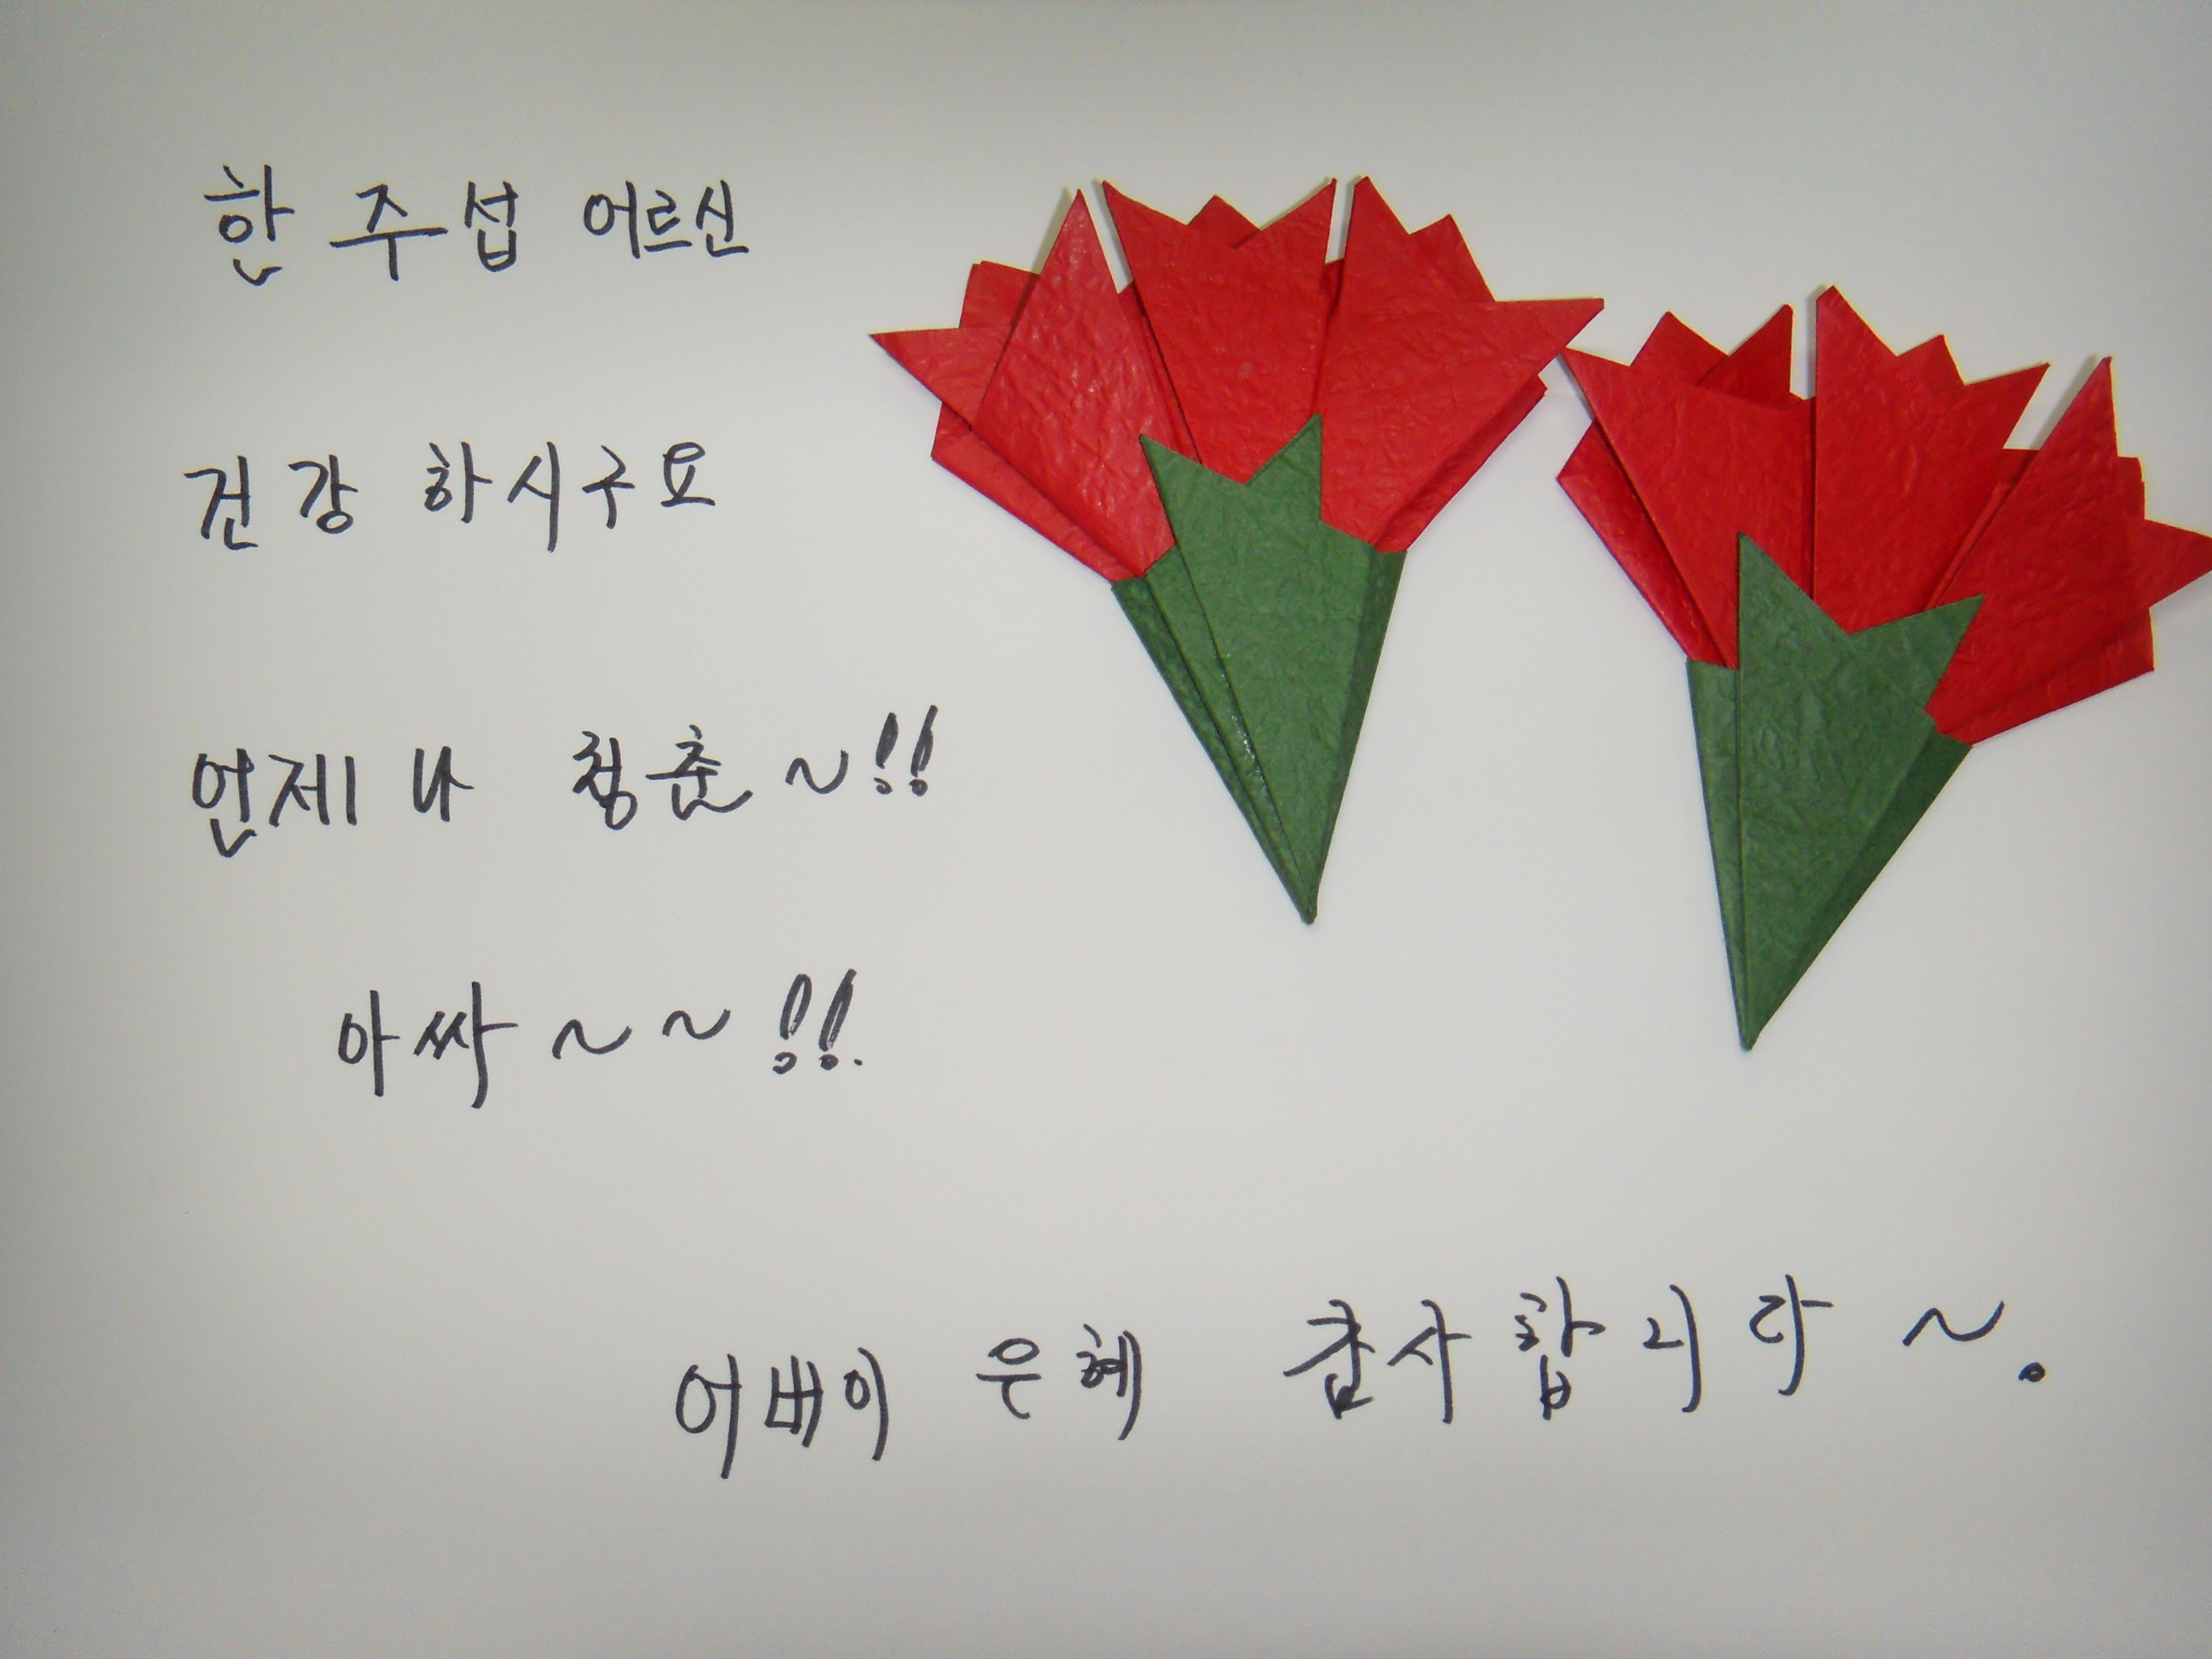 한주섭 어르신
건강 하시구요
언제나 청춘~!!
아싸~~!!.
어버이 은혜 감사합니다~.